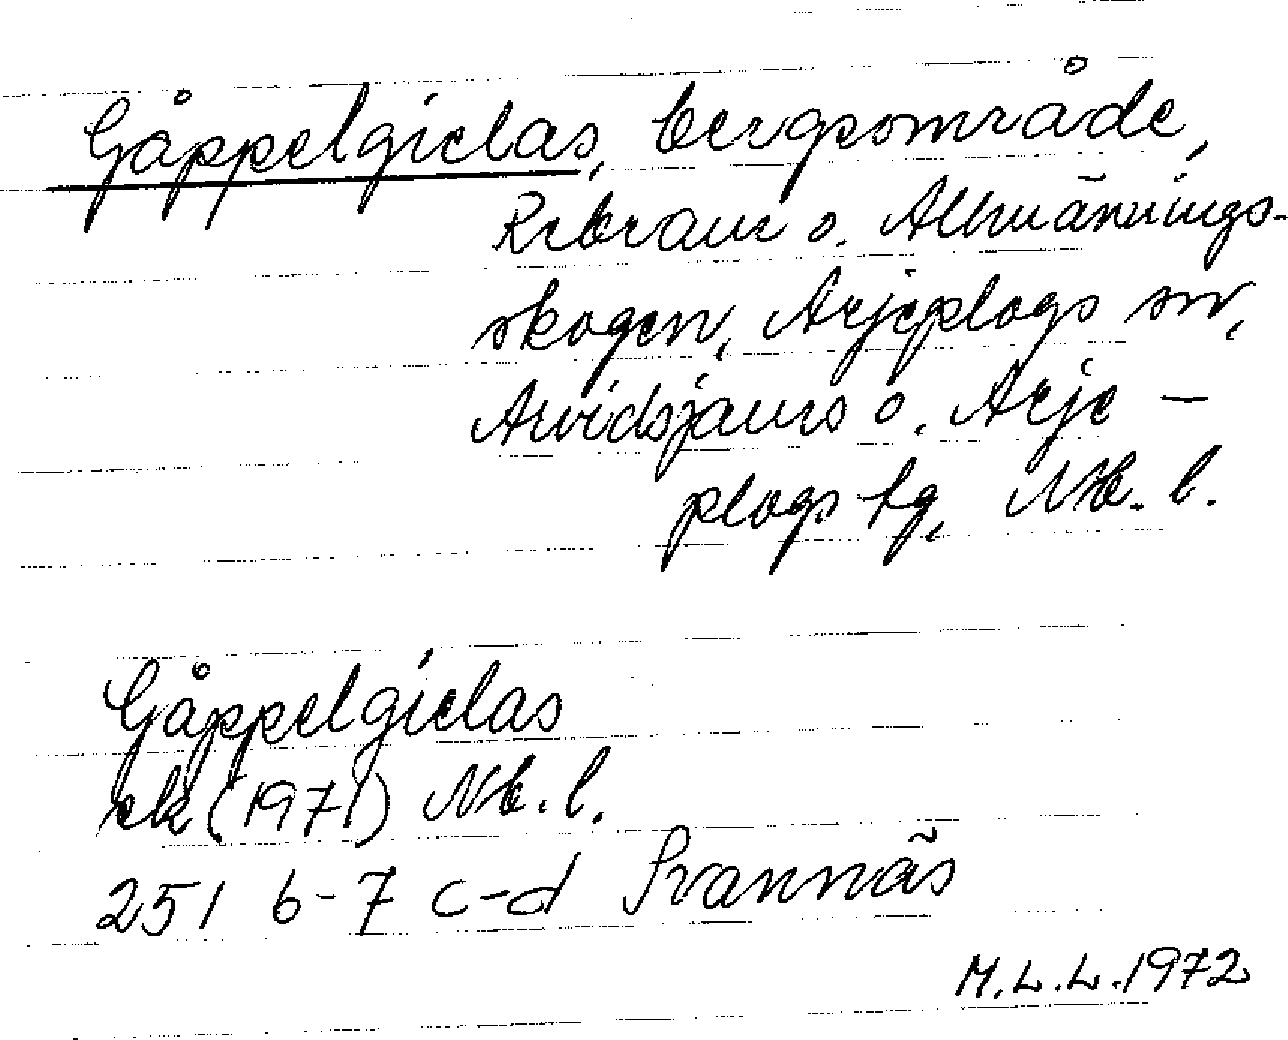 Gåppelgielas, bergsområde,
Rebraur o. Allmännings-
skogen, Arjeplogs sn,
Arvidsjaurs o. Arje-
plogs tg, Nb. l.
Gåppelgielas
ek (1971) Nb. l.
251 6-7 c-d Svannäs
M.L.L. 1972